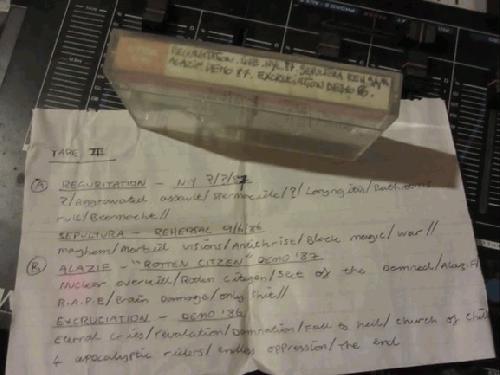 REGURITATION - LIVE N.Y. 87. SEPULTURA REH 9/6/86
ALAZIE DEMO 87. EXCRUCIATION DEMO 86.
TAPE III
A REGURITATION - N.Y ?/?/87
?/Aggravated assault/ /?/Laryngitis/Bathroom
rule/
SEPULTURA - REHERSAL 9/6/86
mayhem/Morbid visions/Antichrist/Black magic/war//
B ALAZIE - "ROTTEN CITZEN" DEMO '87
Nuclear overkill/Roten Citezen/Set of the Damned/Alazie/
R.A.P.E/Brain Damage/only this//
EXCRUCIATION - DEMO '86
Eternal cries/revalation/Damnation/Fall to hell/church of
4 apocalyptic riders/endless oppression/The end